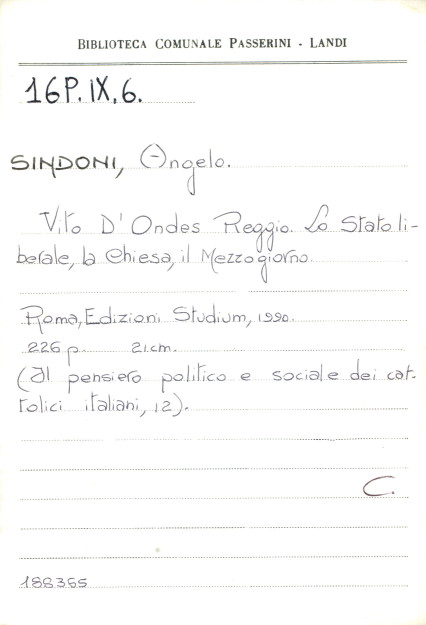 BIBLIOTECA COMUNALE PASSERINI - LANDI
16P.IX.6.
SINDONI, Angelo.
Vito D'Ondes Reggio. Lo Stato li-
berale, la Chiesa, il Mezzogiorno.
Roma, Edizioni Studium, 1990.
226 p. 21 cm.
(Il pensiero politico e sociale dei cat-
tolici italiani, 12).
C.
188365